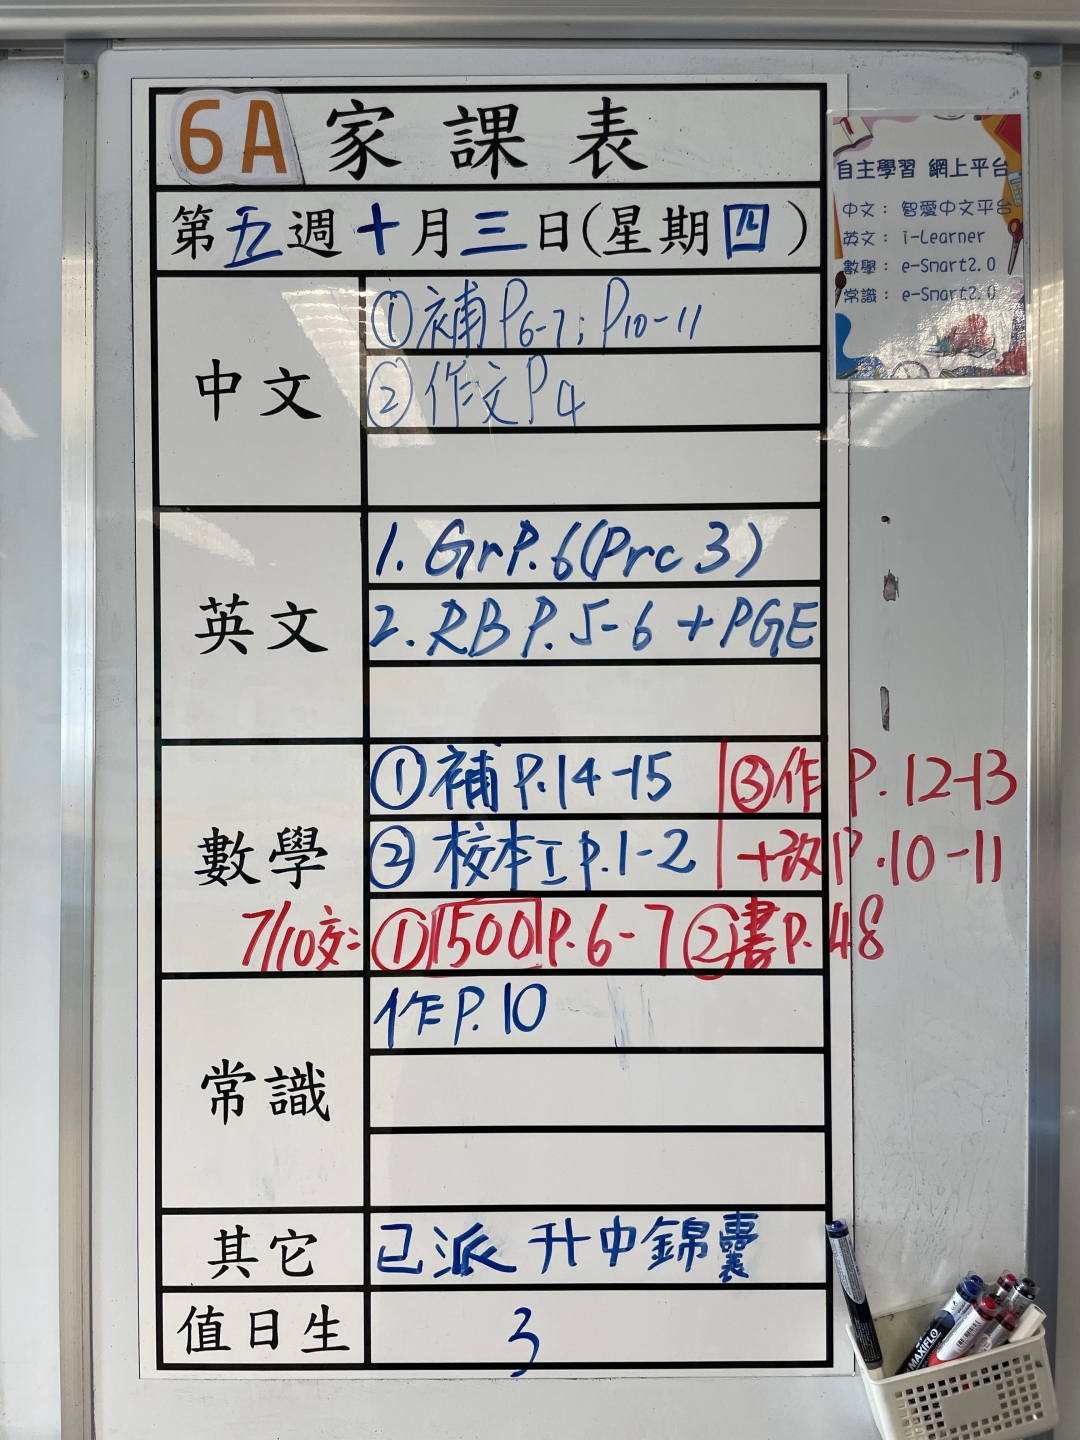 6A 家課表
第五週十月三日(星期四)
中文
①補P6-7; P10-11
②作文P4
英文
1. Gr P.6 (Prc 3)
2. RB P.5-6 + PGE
數學
①補 P.14-15 ③作 P.12-13
②校本工 P.1-2 +改 P.10-11
7/10交: ①1500 P.6-7 ②書P.48
常識
作 P.10
其它
已派 升中錦囊
值日生
3
自主學習 網上平台
中文： 智愛中文平台
英文： i-Learner
數學： e-Smart2.0
常識： e-Smart2.0
MAXIFLO